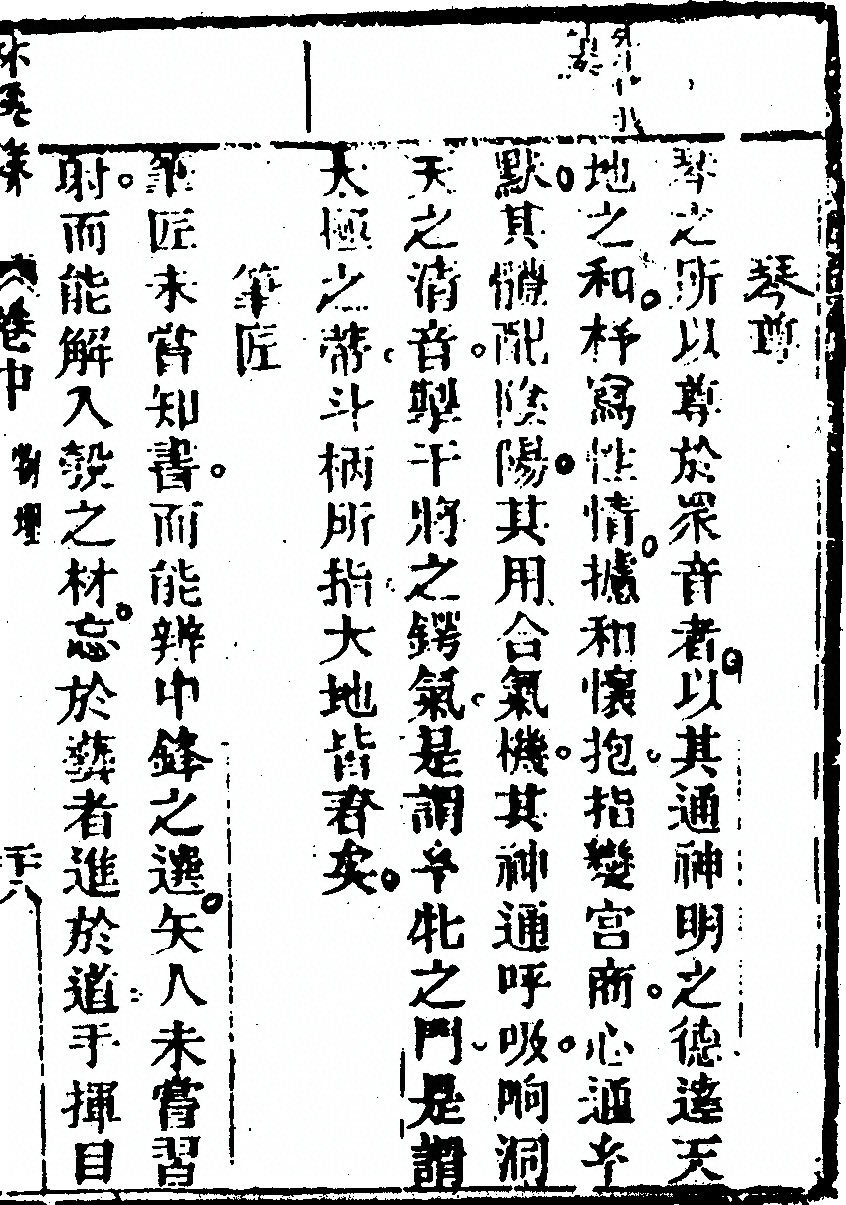 琴尊
琴之所以尊於眾音者以其通神明之德達天
地之和杼寫性情攄和懷抱指變宮商心通乎
默其體配陰陽其用合氣機其神通呼吸响洞
天之清音製干將之鍔氣是謂乎牝之門是謂
太極之蒂斗柄所指大地皆春矣
筆匠
筆匠未嘗知書而能辨中鋒之選矢人未嘗習
射而能解入彀之材忘於藝者進於道手揮目
卷中
物理